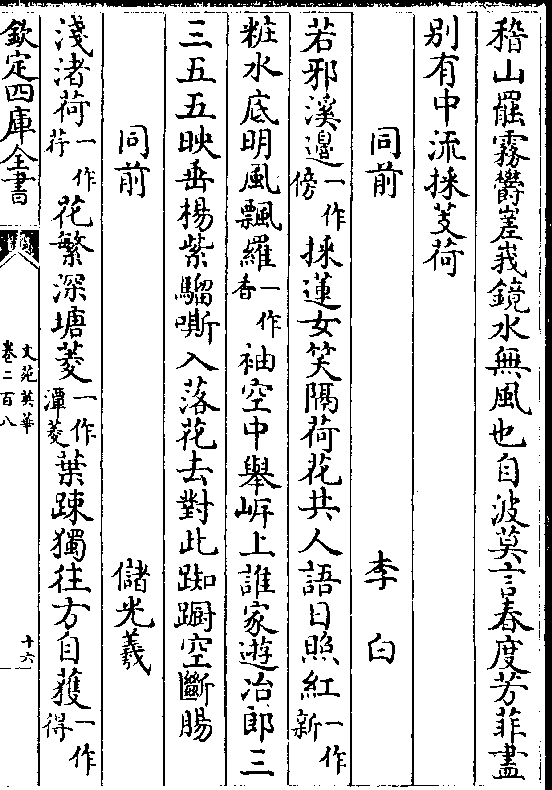 稽山罷霧鬱嵳峩鏡水無風也自波莫言春度芳菲盡
别有中流採芰荷
同前　李白
若邪溪邊一作傍採蓮女笑隔荷花共人語日照紅一作新
粧水底明風飄羅一作香袖空中舉㟁上誰家遊冶郎三
三五五映垂楊紫騮嘶入落花去對此踟蹰空斷腸
同前　儲光羲
淺渚荷一作荇花繁深塘菱一作潭菱葉踈獨往方自獲一作得
欽定四庫全書
文苑英華
卷二百八
十六